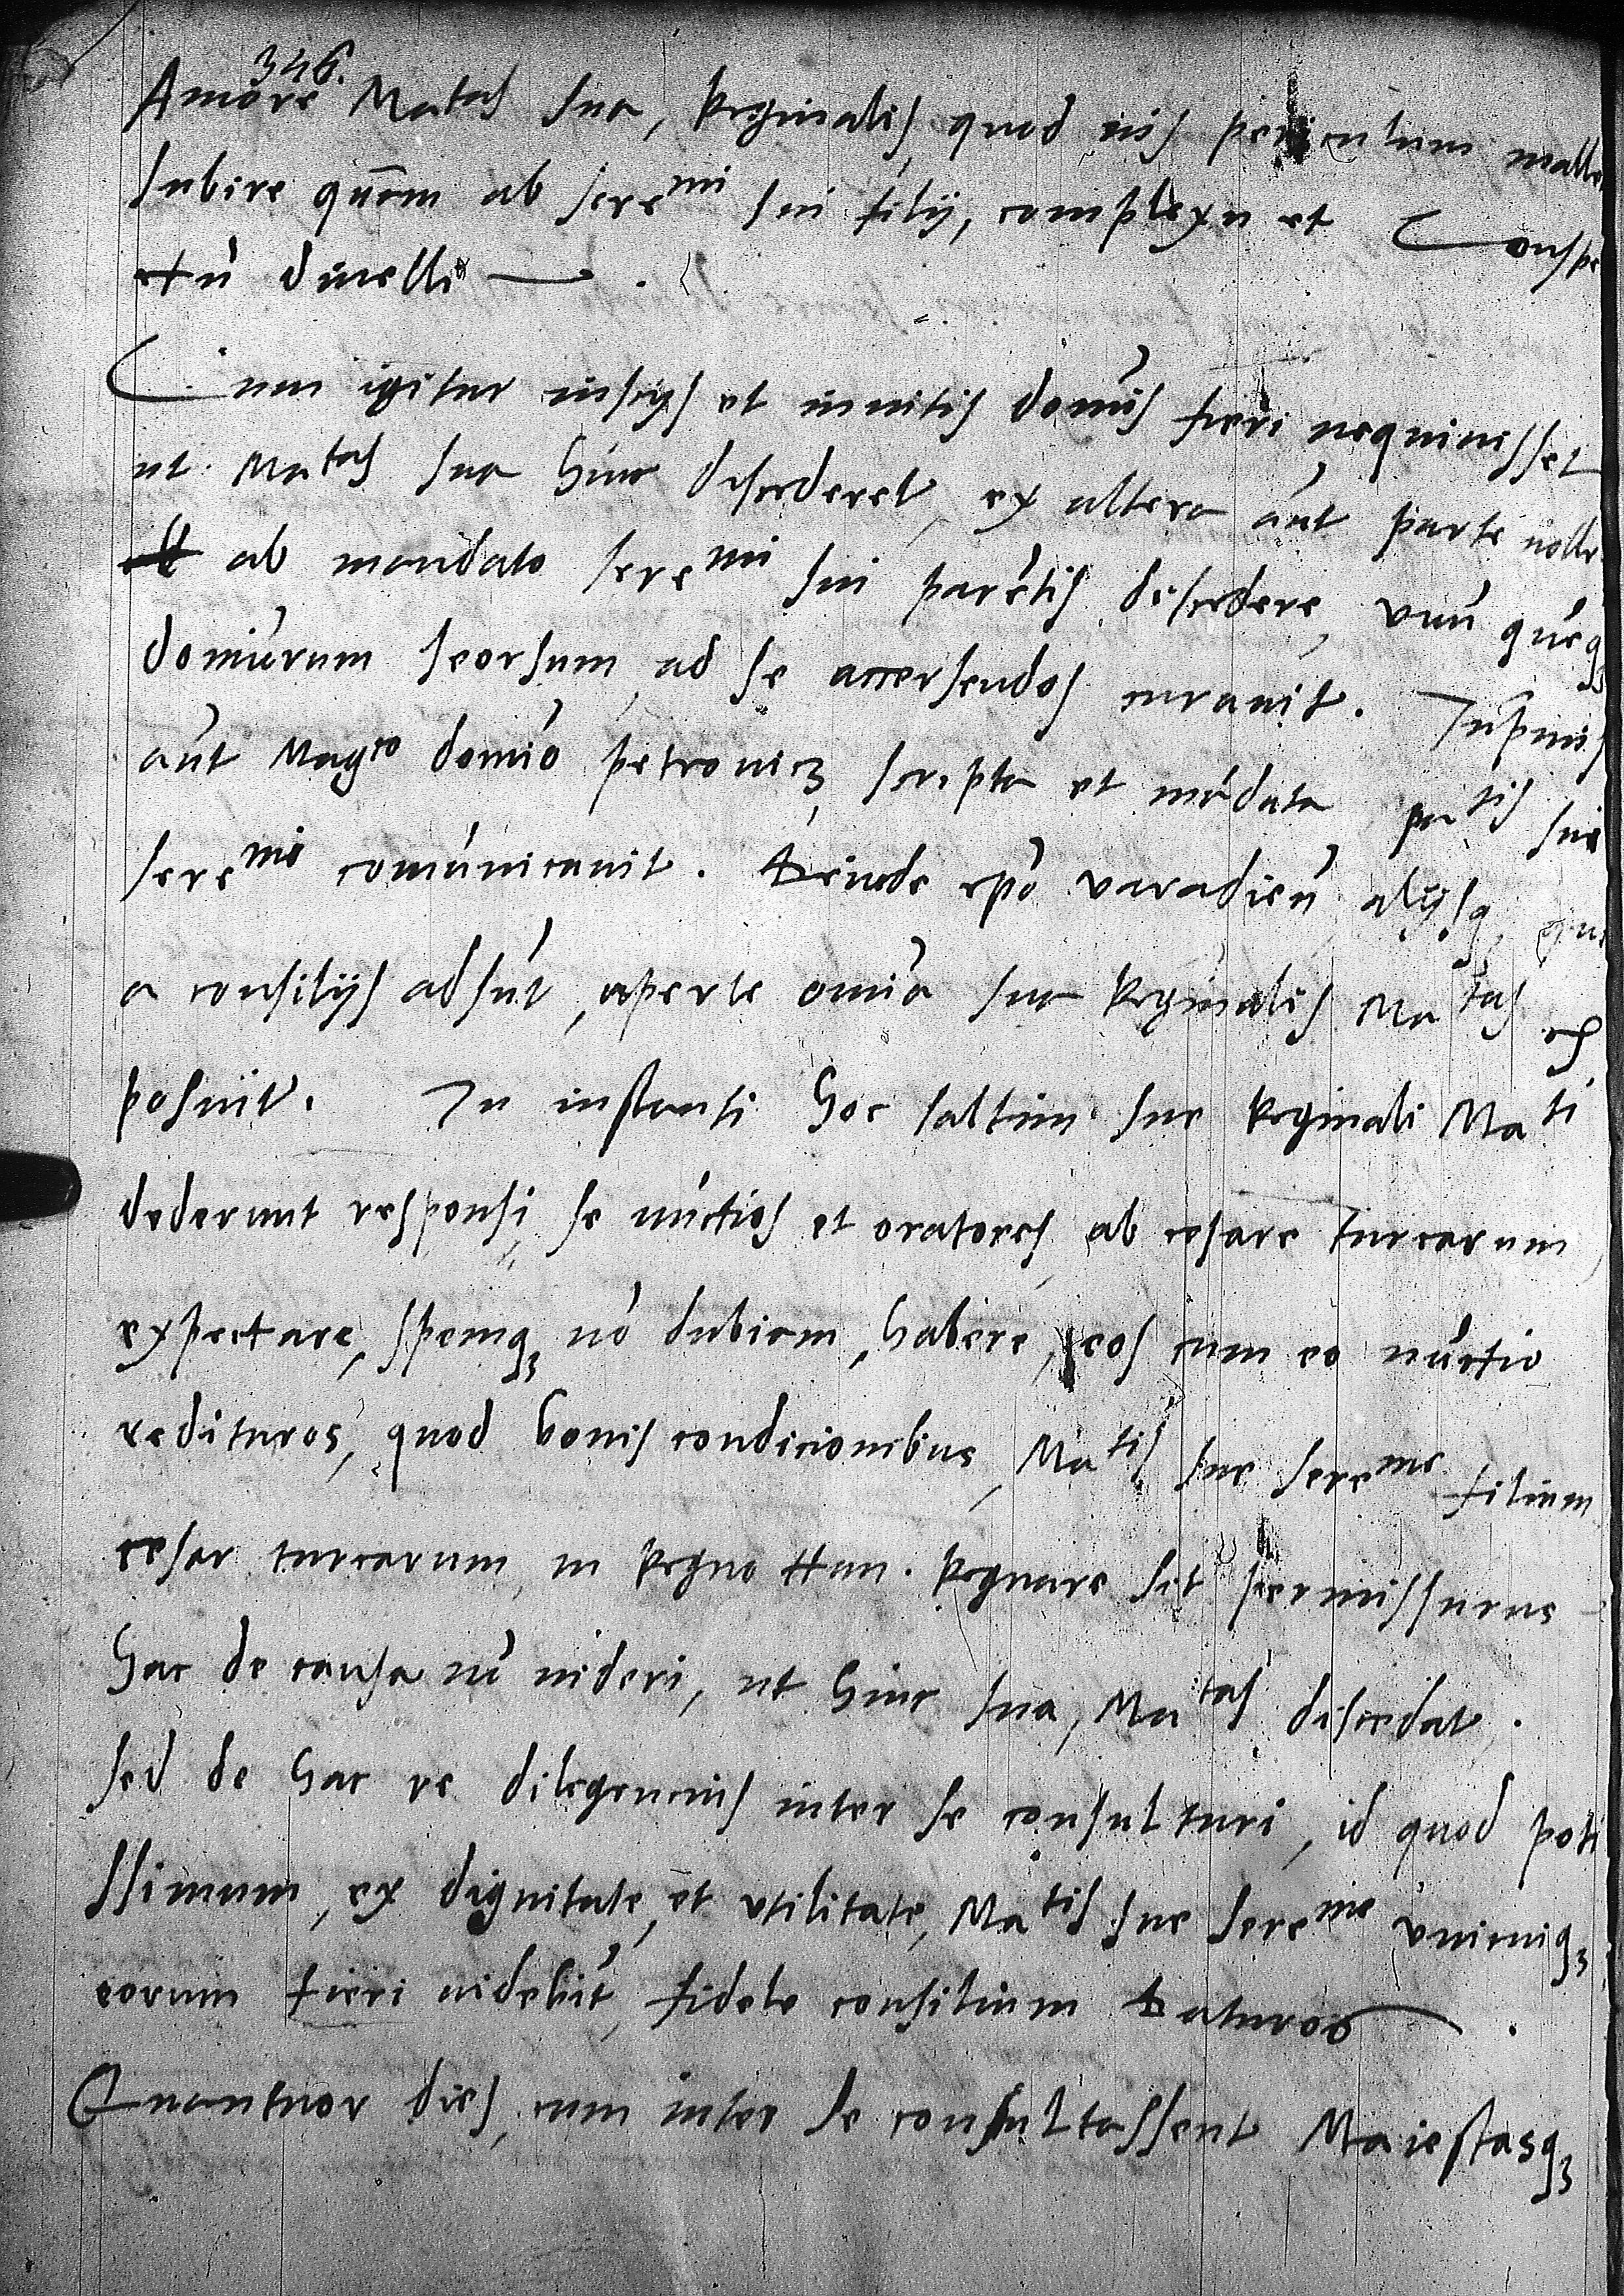 346.
Amore Ma^tas sua, Reginalis, quod vis periculum malle
subire quam ab sere^mi sui filij, complexu et Conspe
ctu diuelli
Cum igitur inscijs et inuitis domīs fieri nequiuisset
ut Ma^tas sua hinc discederet, ex altera aūt parte nolle
ab mandato sere^mi sui parētis discedere, vnū quēq3
dominorum seorsum ad se accersendos curauit. Inprimis
aūt Mag^co domīo petrouic3, scripta et mādata pa^tis sui
sere^mi comūnicauit. Deinde epō varadieñ alijsq3 qui
a consilijs adsūt, aperte omīa sua Reginalis Ma^tas ex
posuit. In instanti hoc saltim sue Reginali Ma^ti
dederunt responsi, se nūctios et oratores, ab cesare turcarum,
expectare, spemq3 nō dubiam, habere, eos cum eo nūctio
redituros, quod bonis condicionibus, Ma^tis sue sere^me filium
cesar turcarum, in Regno Hun. Regnare sit permissurus
hac de causa nō uideri, ut hinc sua, Ma^tas discedat.
sed de hac re diligencius inter se consulturi, id quod poti
ssimum, ex dignitate, et vtilitate, Ma^tis sue sere^me vnicuiq3
eorum fieri uidebit^r, fidele consilium daturos.
Quantuor dies, cum inter se consultassent Maiestasq3